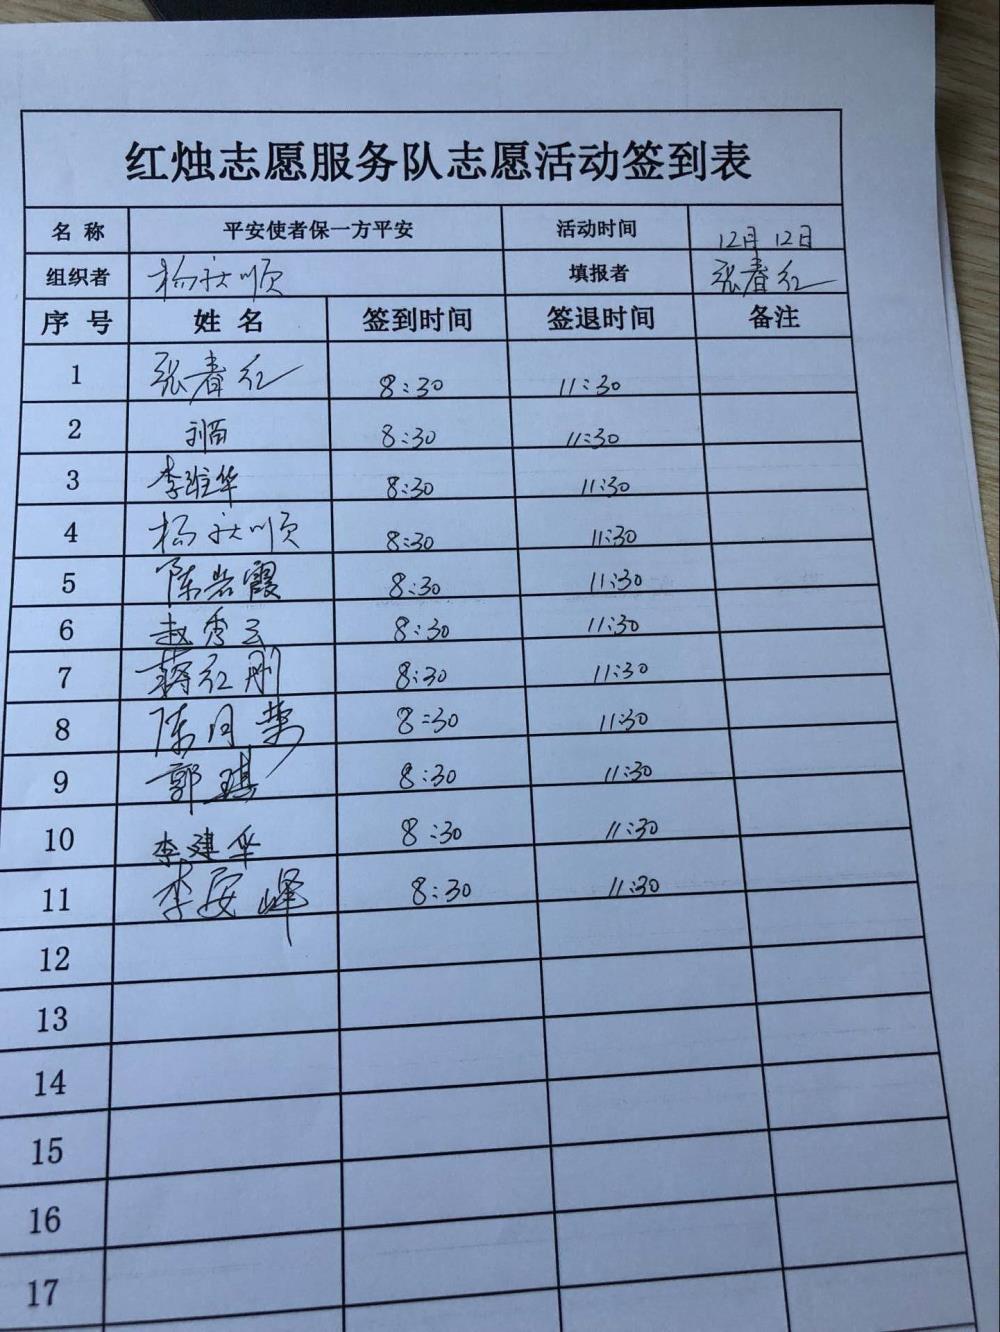 红烛志愿服务队志愿活动签到表
名 称 平安使者保一方平安 活动时间 12月12日
组织者 杨秋顺 填报者 张春红
序 号 姓 名 签到时间 签退时间 备注
1 张春红 8:30 11:30
2 8:30 11:30
3 李维华 8:30 11:30
4 杨秋顺 8:30 11:30
5 陈岩霞 8:30 11:30
6 赵秀云 8:30 11:30
7 蒋红刚 8:30 11:30
8 陈月荣 8:30 11:30
9 郭琪 8:30 11:30
10 李建华 8:30 11:30
11 李安峰 8:30 11:30
12
13
14
15
16
17